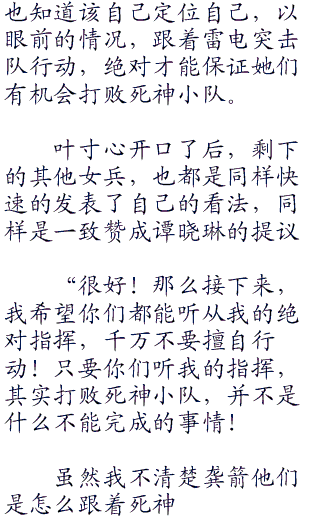 也知道该自己定位自己，以
眼前的情况，跟着雷电突击
队行动，绝对才能保证她们
有机会打败死神小队。
叶寸心开口了后，剩下
的其他女兵，也都是同样快
速的发表了自己的看法，同
样是一致赞成谭晓琳的提议
“很好！那么接下来，
我希望你们都能听从我的绝
对指挥，千万不要擅自行
动！只要你们听我的指挥，
其实打败死神小队，并不是
什么不能完成的事情！
虽然我不清楚龚箭他们
是怎么跟着死神